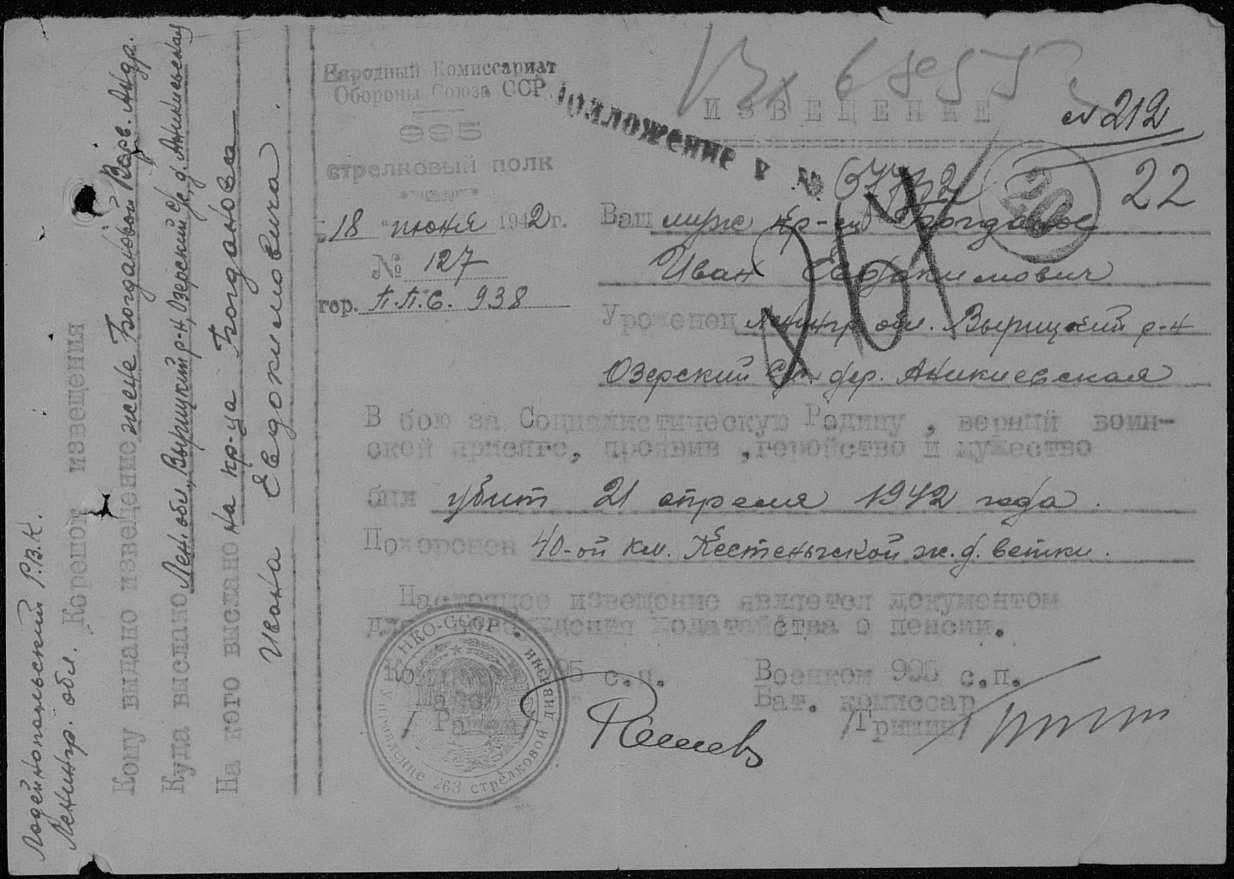 Лодейнопольский Р.В.К.
Ленингр. обл.
Корешок извещения
Кому выдано извещение жене Богдановой Варв. Андр.
Куда выслано Лен. обл., Вырицкий р-н, Озерский с/с, д. Аникиевская
На кого выслано на кр-ца Богданова
Ивана Евдокимовича.
Народный Комиссариат
Обороны Союза ССР.
995
стрелковый полк
"18" июня 1942 г.
№ 127
гор. П.П.С. 938
Вх 6855
ИЗВЕЩЕНИЕ
№ 212
к №
30
22
264
Ваш муж кр-ец Богданов
Иван Евдокимович
Уроженец Ленингр. обл. Вырицкий р-н
Озерский с/с дер. Аникиевская
В бою за Социалистическую Родину, верный воин-
ской присяге, проявив ,геройство и мужество
был убит 21 апреля 1942 года.
Похоронен 40-ой км. Кестеньгской ж.д. ветки.
Настоящее извещение является документом
для возбуждения ходатайства о пенсии.
995 с.п.
Военком 995 с.п.
Бат. комиссар
НКО-СССР
Управление 263 стрелковой дивизии